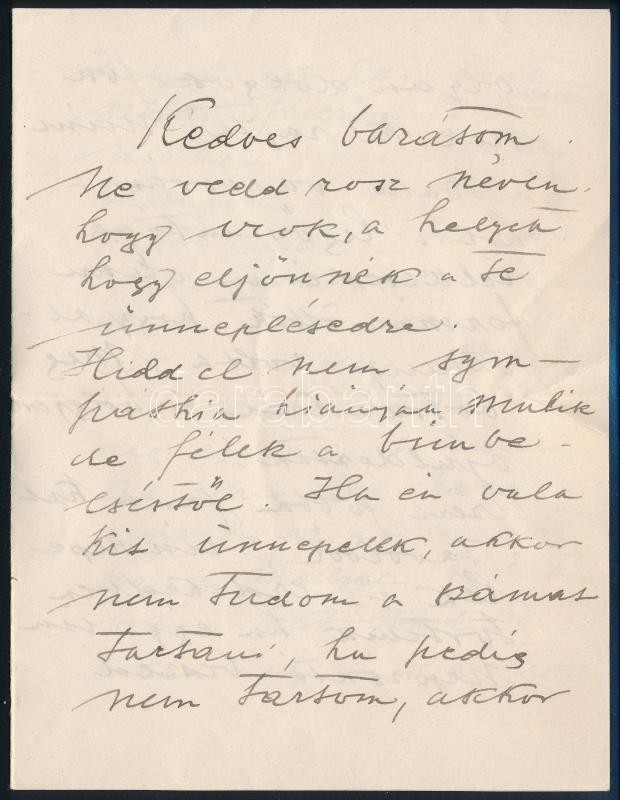 Kedves barátom.
Ne vedd rosz néven.
hogy irok, a helyett
hogy eljönnék a te
ünneplésedre.
Hidd el nem sym-
pathia hiányán mulik
de félek a bűnbe-
eséstől. Ha én vala
kit ünnepelek, akkor
nem tudom a számat
tartani, ha pedig
nem tartom, akkor
darabanth